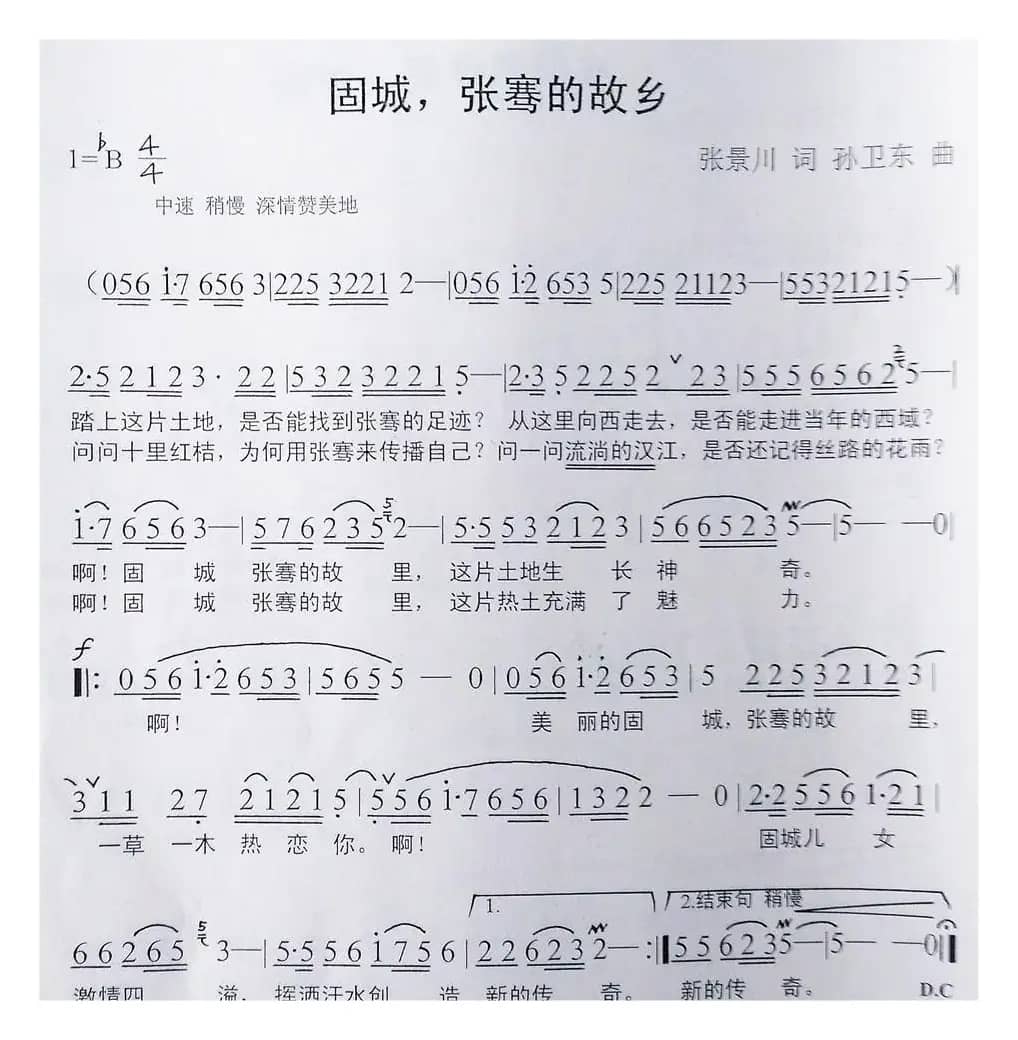 固城，张骞的故乡
1=♭B 4/4
张景川 词 孙卫东 曲
中速 稍慢 深情赞美地
（056 1·7 656 3|225 3221 2—|056 1·2 653 5|225 21123—|553212 15—）|
2·5 2123· 22|532 32215—|2·3 5 2252 23|555 65625—|
踏上这片土地，是否能找到张骞的足迹？ 从这里向西走去，是否能走进当年的西域？
问问十里红桔，为何用张骞来传播自己？问一问流淌的汉江，是否还记得丝路的花雨？
1·7 656 3—|576 235 2—|5·5 53 212 3|566 6523 5—|5— —0|
啊！固 城 张骞的故 里， 这片土地生 长 神 奇。
啊！固 城 张骞的故 里， 这片热土充满 了 魅 力。
f
‖: 056 1·2 653|5655 — 0|056 1·2 653|5 225 3212 3|
啊！ 美 丽的固 城，张骞的故 里，
3 11 27 2121 5|556 1·7 656|1322 — 0|2·2 556 1·21|
一草 一木 热 恋 你。啊！ 固城儿 女
1. 2.结束句 稍慢
66 265 3—|5·5 56 175 6|22 623 2—:‖55 623 5—|5— —0‖
激情四 溢，挥洒汗水创 造 新的传 奇。 新的传 奇。 D.C